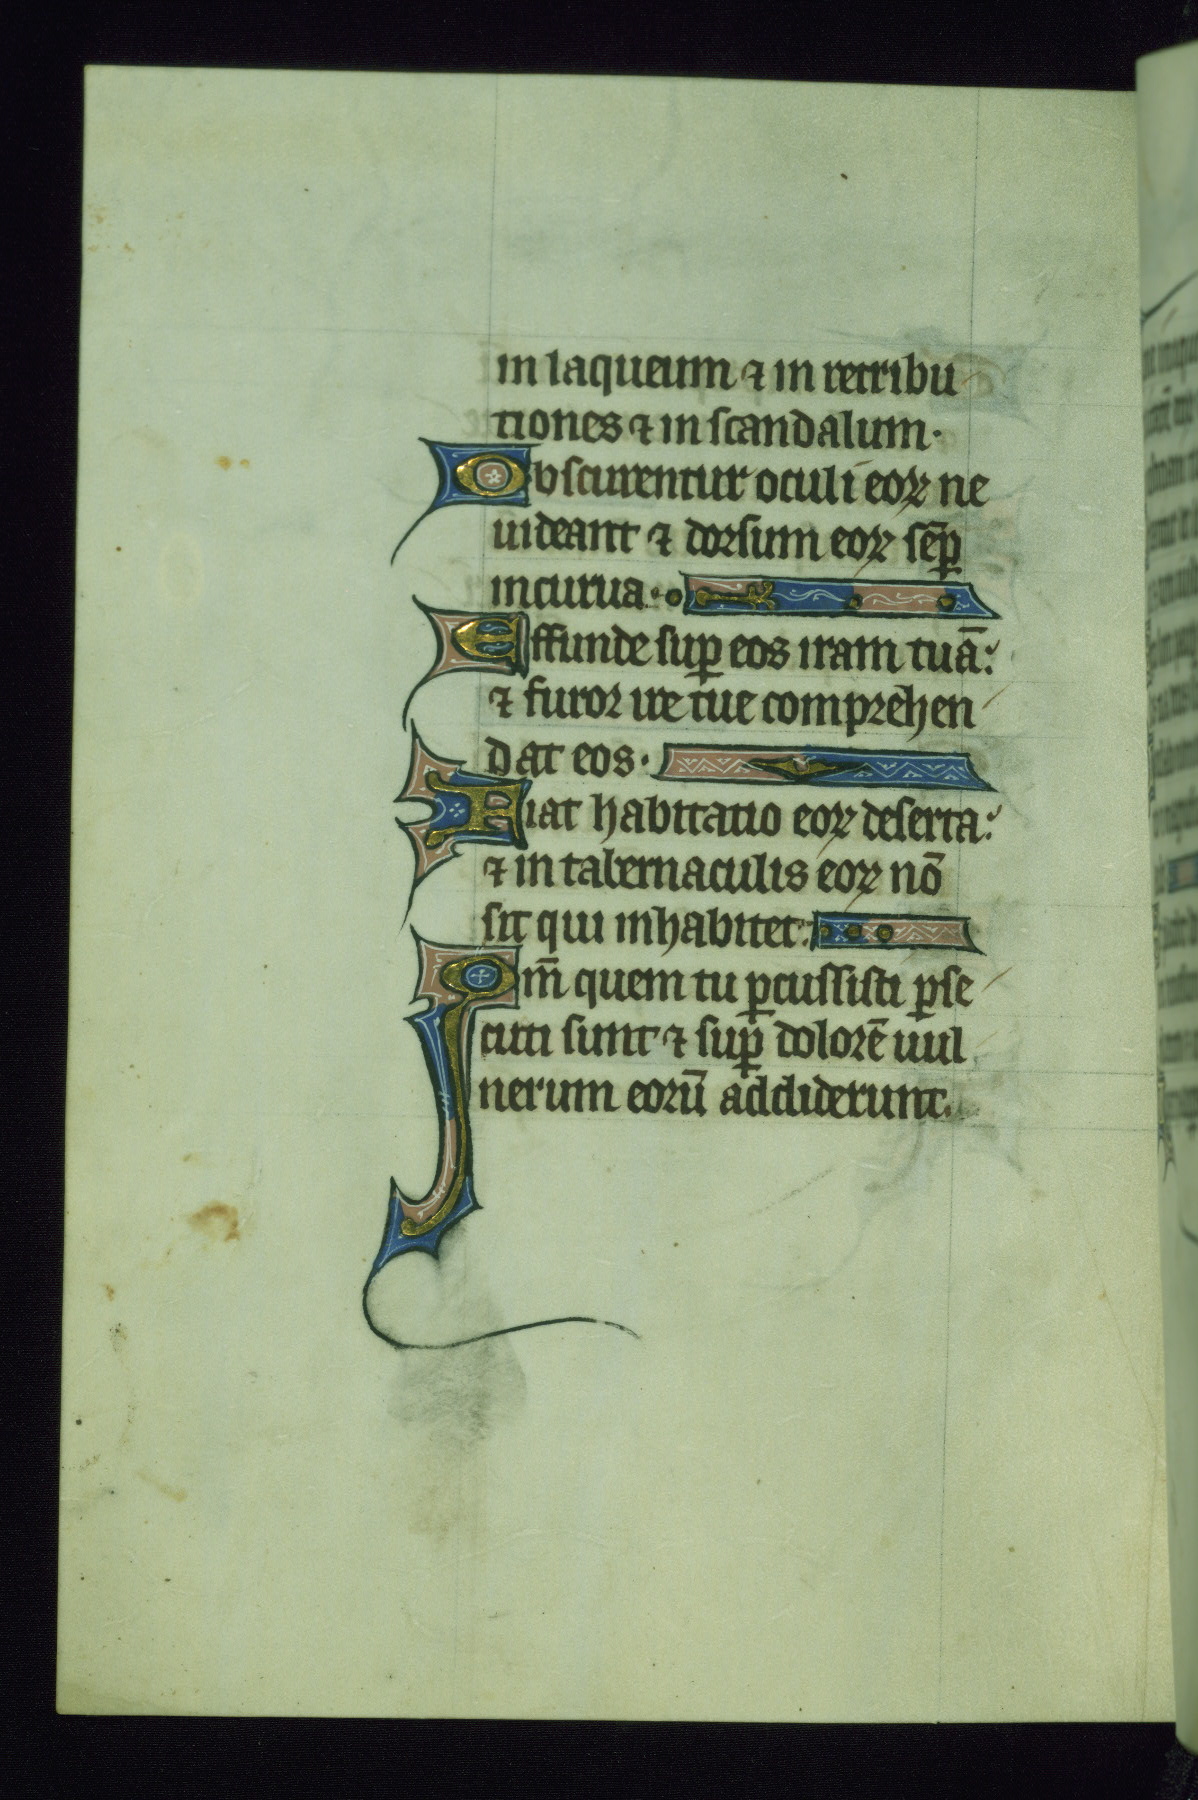 in laqueum ⁊ in retribu
tiones ⁊ in scandalum·
Obscurentur oculi eoꝝ ne
uideant ⁊ dorsum eoꝝ sēꝑ
incurua·
Effunde suꝑ eos iram tuā:
⁊ furor ire tue comprehen
dat eos·
Fiat habitatio eoꝝ deserta:
⁊ in tabernaculis eoꝝ nō
sit qui inhabitet:
Qm̄ quem tu ꝑcussisti ꝑse
cuti sunt ⁊ suꝑ dolorē uul
nerum eorū addiderunt.